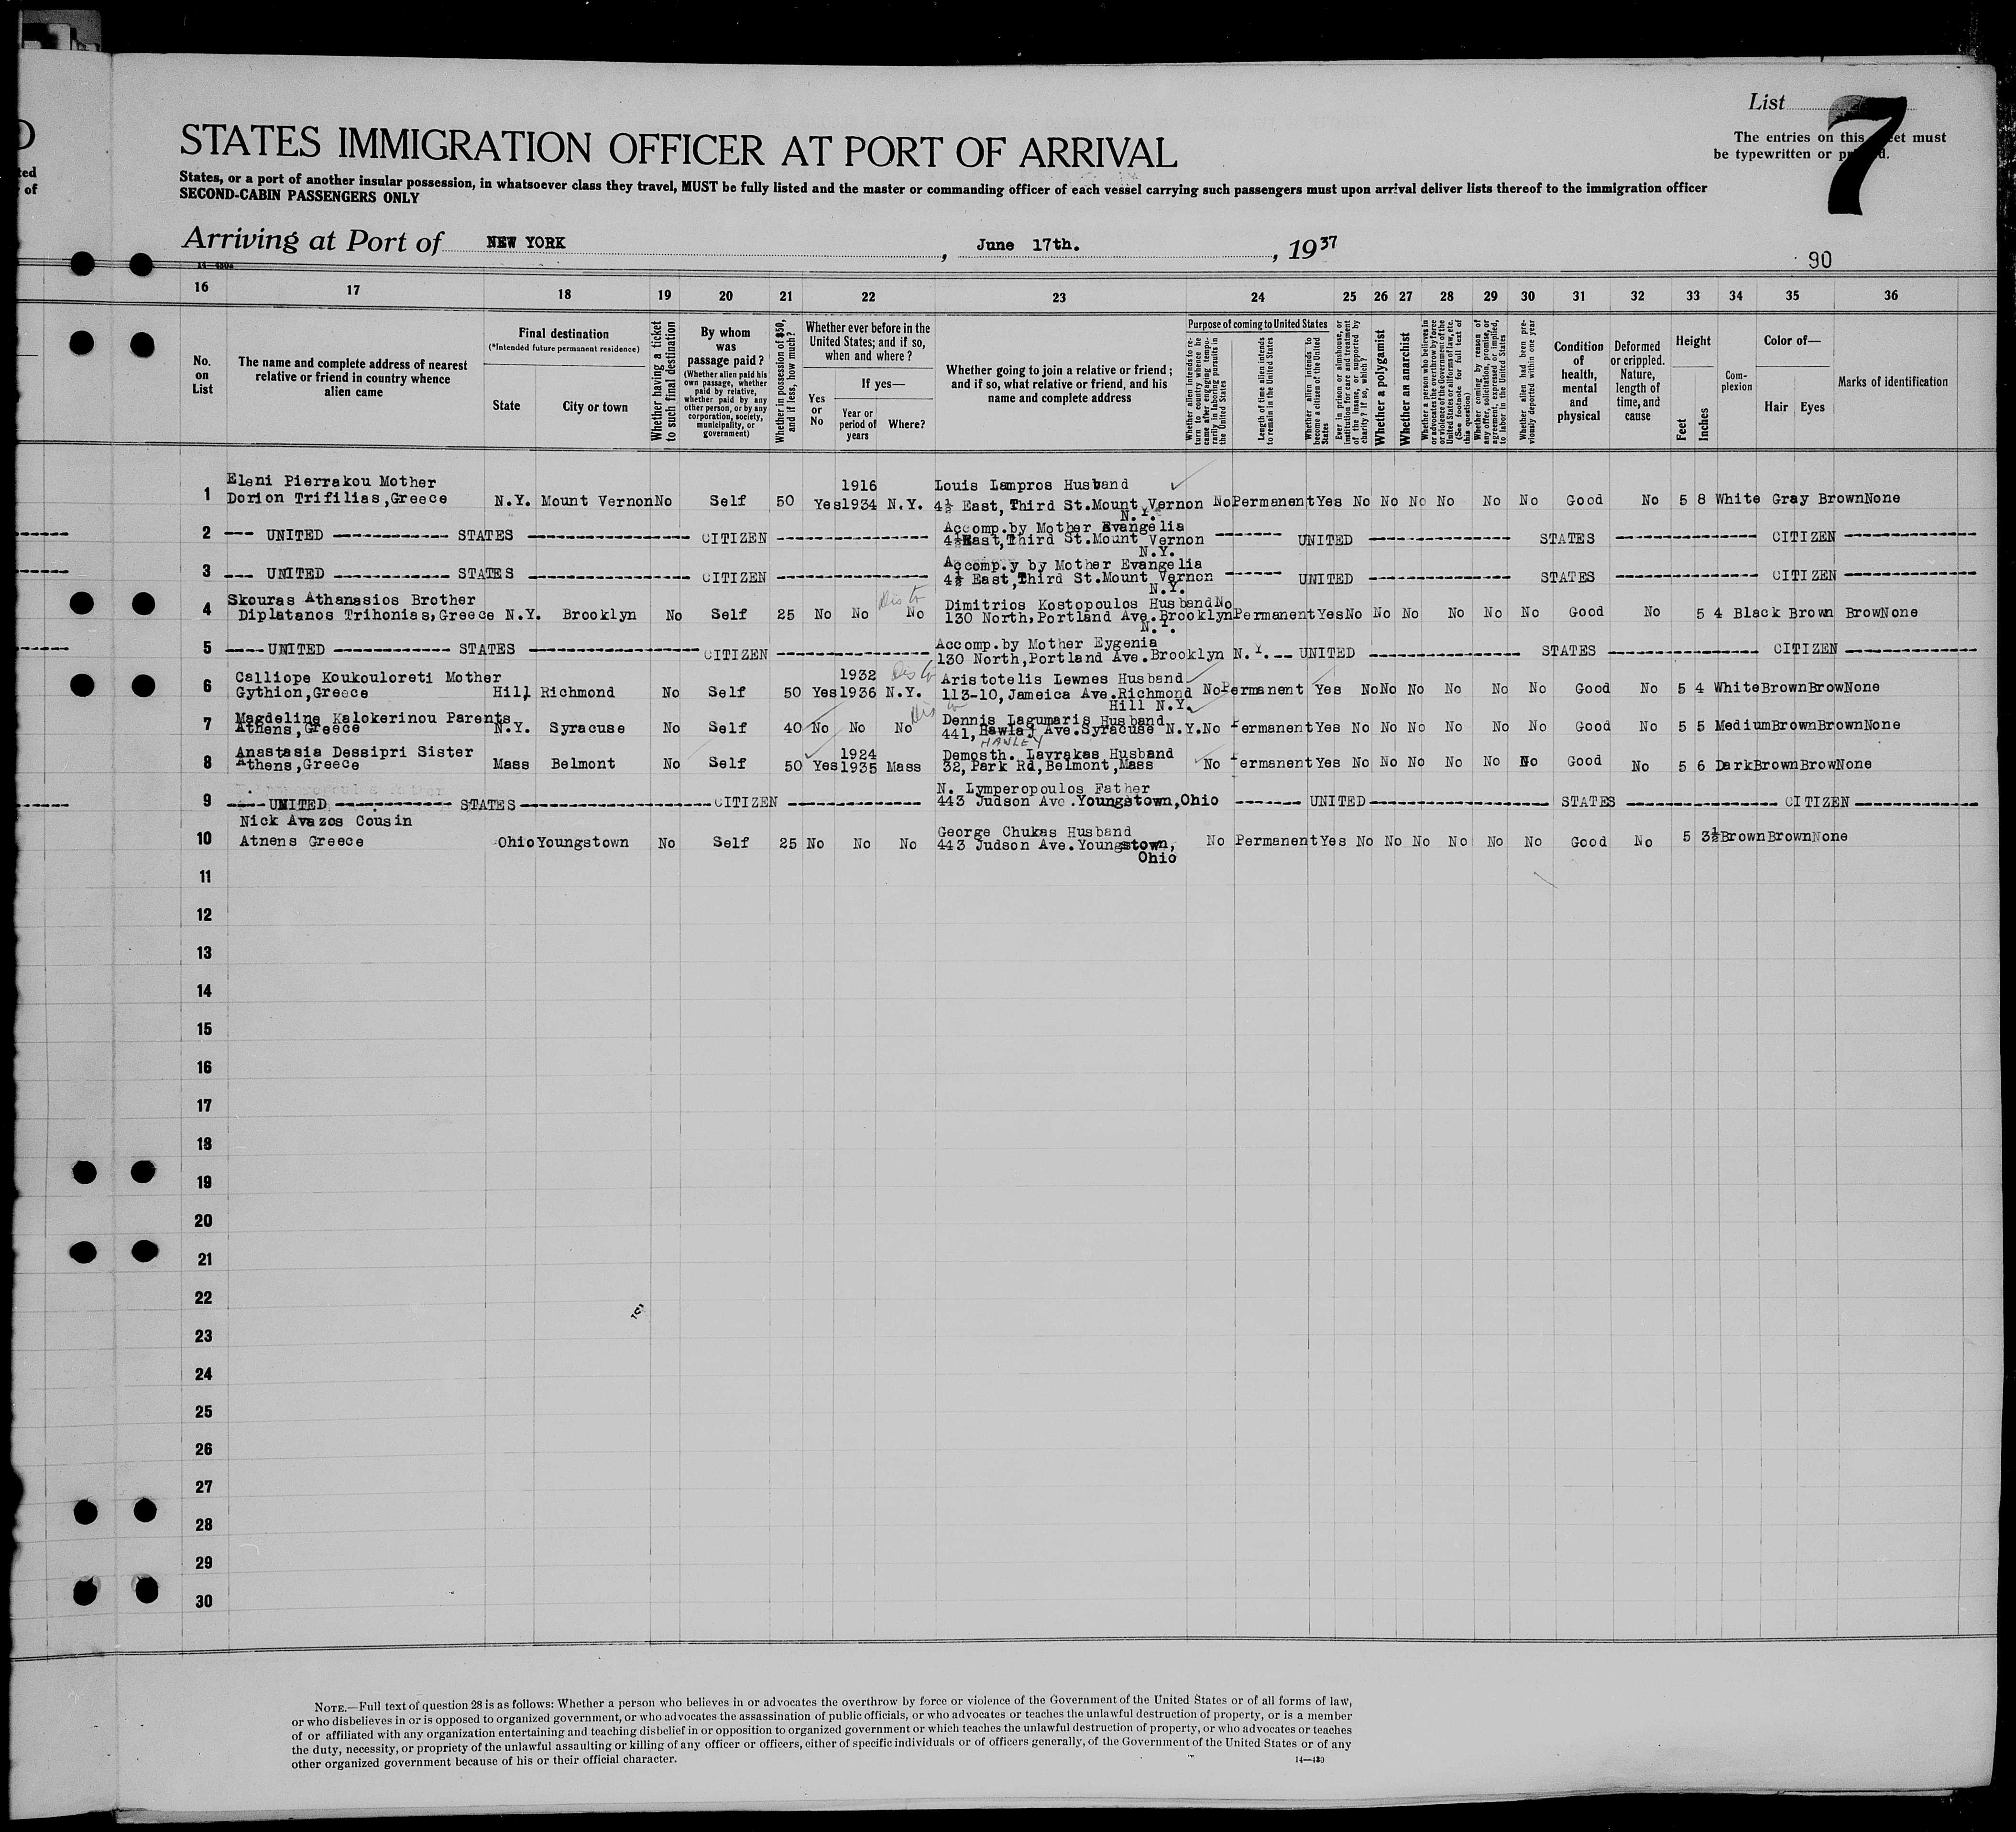 List
7
The entries on this sheet must
be typewritten or printed.
STATES IMMIGRATION OFFICER AT PORT OF ARRIVAL
States, or a port of another insular possession, in whatsoever class they travel, MUST be fully listed and the master or commanding officer of each vessel carrying such passengers must upon arrival deliver lists thereof to the immigration officer
SECOND-CABIN PASSENGERS ONLY
Arriving at Port of NEW YORK, June 17th., 1937
90
16 17 18 19 20 21 22 23 24 25 26 27 28 29 30 31 32 33 34 35 36
No. on List
The name and complete address of nearest relative or friend in country whence alien came
Final destination
(*Intended future permanent residence)
State
City or town
Whether having a ticket to such final destination
By whom was passage paid?
(Whether alien paid his own passage, whether paid by relative, whether paid by any other person, or by any corporation, society, municipality, or government)
Whether in possession of $50, and if less, how much?
Whether ever before in the United States; and if so, when and where?
Yes or No
If yes—
Year or period of years
Where?
Whether going to join a relative or friend; and if so, what relative or friend, and his name and complete address
Purpose of coming to United States
Whether alien intends to return to country whence he came after engaging temporarily in laboring pursuits in the United States
Length of time alien intends to remain in the United States
Whether alien intends to become a citizen of the United States
Ever in prison or almshouse, or institution for care and treatment of the insane, or supported by charity? If so, which?
Whether a polygamist
Whether an anarchist
Whether a person who believes in or advocates the overthrow by force or violence of the Government of the United States or all forms of law, etc. (See footnote for full text of this question)
Whether coming by reason of any offer, solicitation, promise, or agreement, expressed or implied, to labor in the United States
Whether alien had been previously deported within one year
Condition of health, mental and physical
Deformed or crippled. Nature, length of time, and cause
Height
Feet
Inches
Complexion
Color of—
Hair
Eyes
Marks of identification
Eleni Pierrakou Mother 1916 Louis Lampros Husband
1 Dorion Trifilias,Greece N.Y. Mount Vernon No Self 50 Yes 1934 N.Y. 4½ East, Third St.Mount Vernon No Permanent Yes No No No No No No Good No 5 8 White Gray Brown None
N.Y.
Accomp.by Mother Evangelia
2 --- UNITED --- STATES --- CITIZEN --- 4½ East,Third St.Mount Vernon --- UNITED --- STATES --- CITIZEN ---
N.Y.
Accomp.y by Mother Evangelia
3 --- UNITED --- STATES --- CITIZEN --- 4½ East,Third St.Mount Vernon --- UNITED --- STATES --- CITIZEN ---
N.Y.
Skouras Athanasios Brother Dimitrios Kostopoulos Husband No
4 Diplatanos Trihonias,Greece N.Y. Brooklyn No Self 25 No No No 130 North,Portland Ave.Brooklyn Permanent Yes No No No No No No Good No 5 4 Black Brown Brow None
N.Y.
Accomp.by Mother Eygenia
5 ---- UNITED --- STATES --- CITIZEN --- 130 North,Portland Ave.Brooklyn N.Y.-- UNITED --- STATES --- CITIZEN ---
Calliope Koukouloreti Mother 1932 Aristotelis Lewnes Husband
6 Gythion,Greece Hill Richmond No Self 50 Yes 1936 N.Y. 113-10,Jameica Ave.Richmond No Permanent Yes No No No No No No Good No 5 4 White Brown Brow None
Hill N.Y.
Magdeline Kalokerinou Parents Dennis Lagumaris Husband
7 Athens,Greece N.Y. Syracuse No Self 40 No No No 441, Hawlaj Ave.Syracuse N.Y. No Permanent Yes No No No No No No Good No 5 5 Medium Brown Brown None
HAWLEY
Anastasia Dessipri Sister 1924 Demosth. Lavrakas Husband
8 Athens,Greece Mass Belmont No Self 50 Yes 1935 Mass 32, Park Rd,Belmont,Mass No Permanent Yes No No No No No No Good No 5 6 Dark Brown Brow None
N. Lymperopoulos Father
9 ---- UNITED --- STATES --- CITIZEN --- 443 Judson Ave.Youngstown,Ohio --- UNITED --- STATES --- CITIZEN ---
Nick Avazos Cousin George Chukas Husband
10 Atnens Greece Ohio Youngstown No Self 25 No No No 443 Judson Ave.Youngstown, No Permanent Yes No No No No No No Good No 5 3½ Brown Brown None
Ohio
11
12
13
14
15
16
17
18
19
20
21
22
23
24
25
26
27
28
29
30
NOTE.—Full text of question 28 is as follows: Whether a person who believes in or advocates the overthrow by force or violence of the Government of the United States or of all forms of law,
or who disbelieves in or is opposed to organized government, or who advocates the assassination of public officials, or who advocates or teaches the unlawful destruction of property, or is a member
of or affiliated with any organization entertaining and teaching disbelief in or opposition to organized government or which teaches the unlawful destruction of property, or who advocates or teaches
the duty, necessity, or propriety of the unlawful assaulting or killing of any officer or officers, either of specific individuals or of officers generally, of the Government of the United States or of any
other organized government because of his or their official character.
14—430